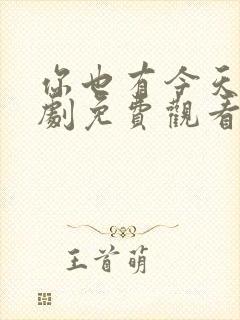 你也有今天
劇免費觀看
王首萌